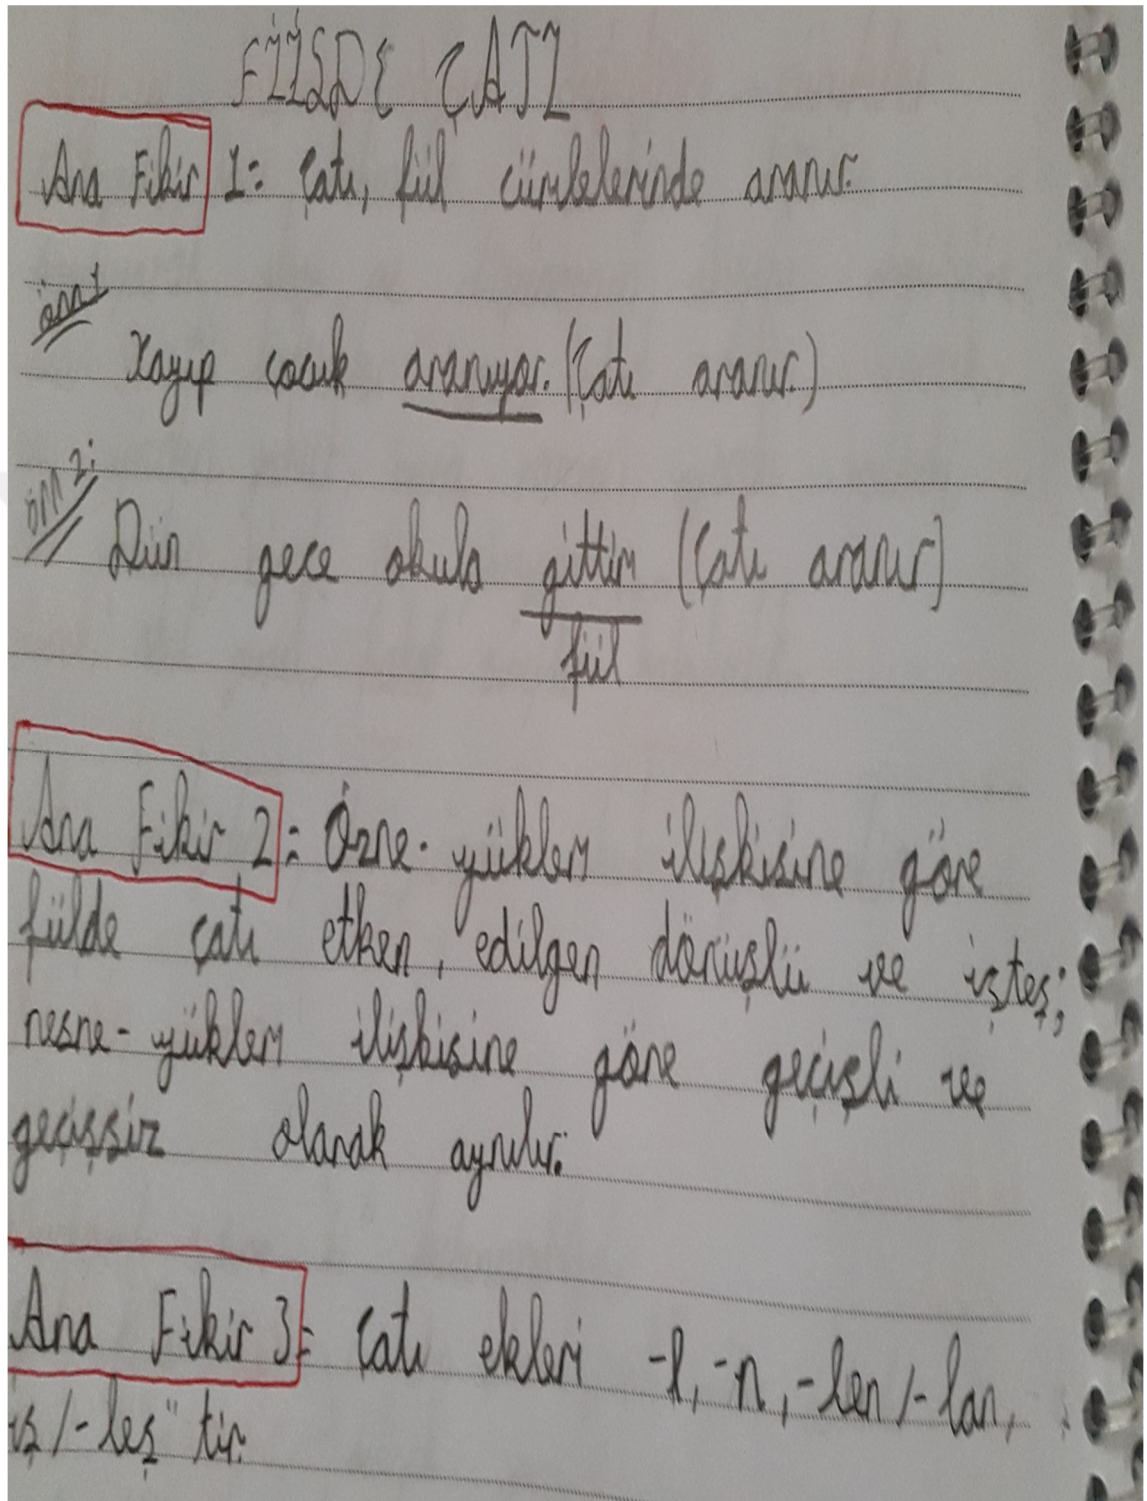 FİİLDE ÇATI
Ana Fikir 1= Çatı, fiil cümlelerinde aranır.
örn1
Kayıp çocuk aranıyor. (Çatı aranır.)
örn 2:
Dün gece okula gittim (Çatı aranır)
fiil
Ana Fikir 2= Özne-yüklem ilişkisine göre
fiilde çatı etken, edilgen dönüşlü ve işteş;
nesne-yüklem ilişkisine göre geçişli ve
geçişsiz olarak ayrılır.
Ana Fikir 3= Çatı ekleri -l, -n, -len/-lan,
iş/-leş" tir.